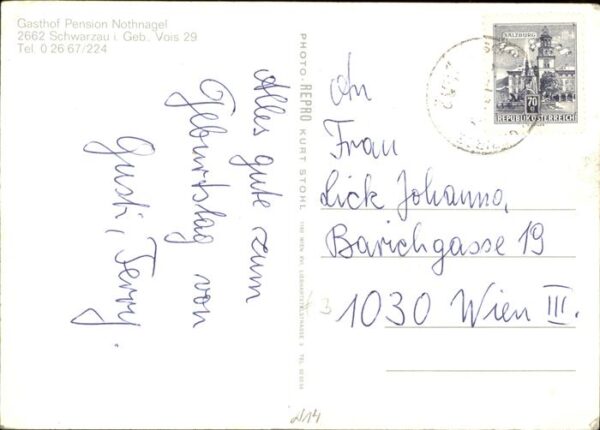 Gasthof Pension Nothnagel
2662 Schwarzau i. Geb. Vois 29
Tel. 0 26 67/224
Alles gute zum
Geburtstag von
Gusti, Ferry.
PHOTO-REPRO KURT STOHL
SALZBURG
70
REPUBLIK ÖSTERREICH
An
Frau
Lick Johanna,
Barichgasse 19
1030 Wien III.